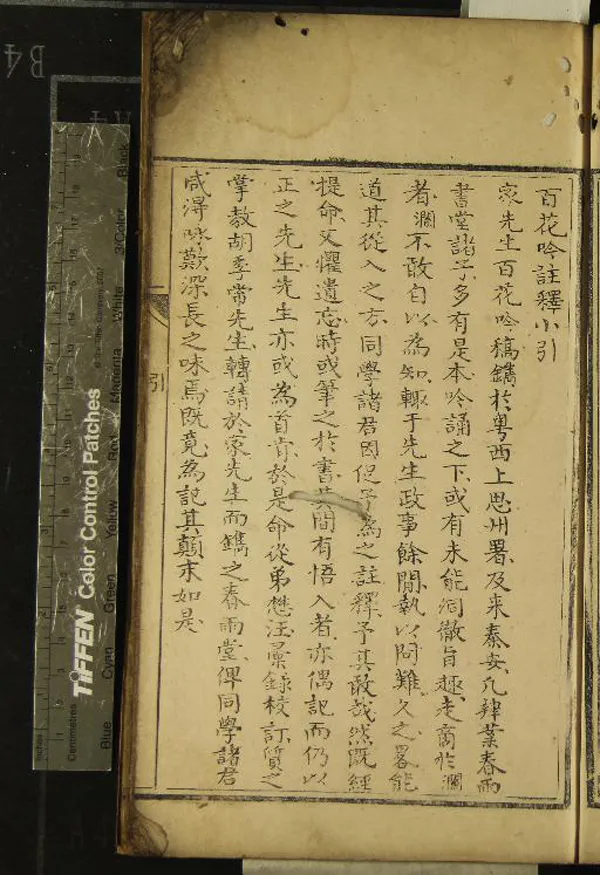 百花吟註釋小引
家先生百花吟稿鐫於粤西上思州署及来秦安凡肄業春雨
書堂諸子多有是本吟誦之下或有未能洞徹旨趣走商於瀾
者瀾不敢自以為知輒于先生政事餘閒執以問難久之畧能
道其從入之方同學諸君因促予為之註釋予其敢哉然既經
提命又懼遺忘時或筆之於書其間有悟入者亦偶記而仍以
正之先生先生亦或為首肯於是命從弟懋汪彙錄校訂質之
掌教胡季常先生轉請於家先生而鐫之春雨堂俾同學諸君
咸得咏歎深長之味焉既竟為記其顛末如是
引
B4
A4
TIFFEN Color Control Patches
© The Tiffen Company, 2007
Inches
Centimetres
Blue
Cyan
Green
Yellow
Red
Magenta
White
3/Color
Black